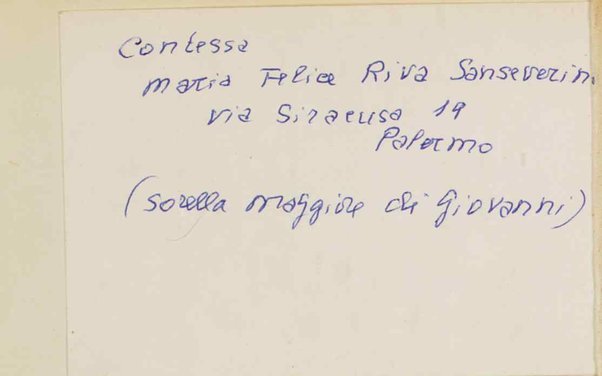 Contessa
Maria Felice Riva Sanseverin.
via Siracusa 19
Palermo
(sorella maggiore di Giovanni)